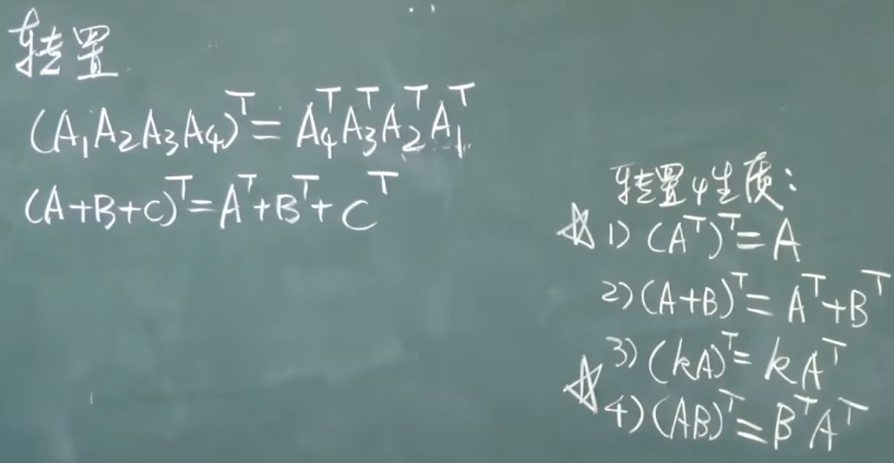 转置
(A₁A₂A₃A₄)ᵀ=A₄ᵀA₃ᵀA₂ᵀA₁ᵀ
(A+B+C)ᵀ=Aᵀ+Bᵀ+Cᵀ
转置性质:
☆1) (Aᵀ)ᵀ=A
2) (A+B)ᵀ=Aᵀ+Bᵀ
3) (kA)ᵀ=kAᵀ
☆4) (AB)ᵀ=BᵀAᵀ